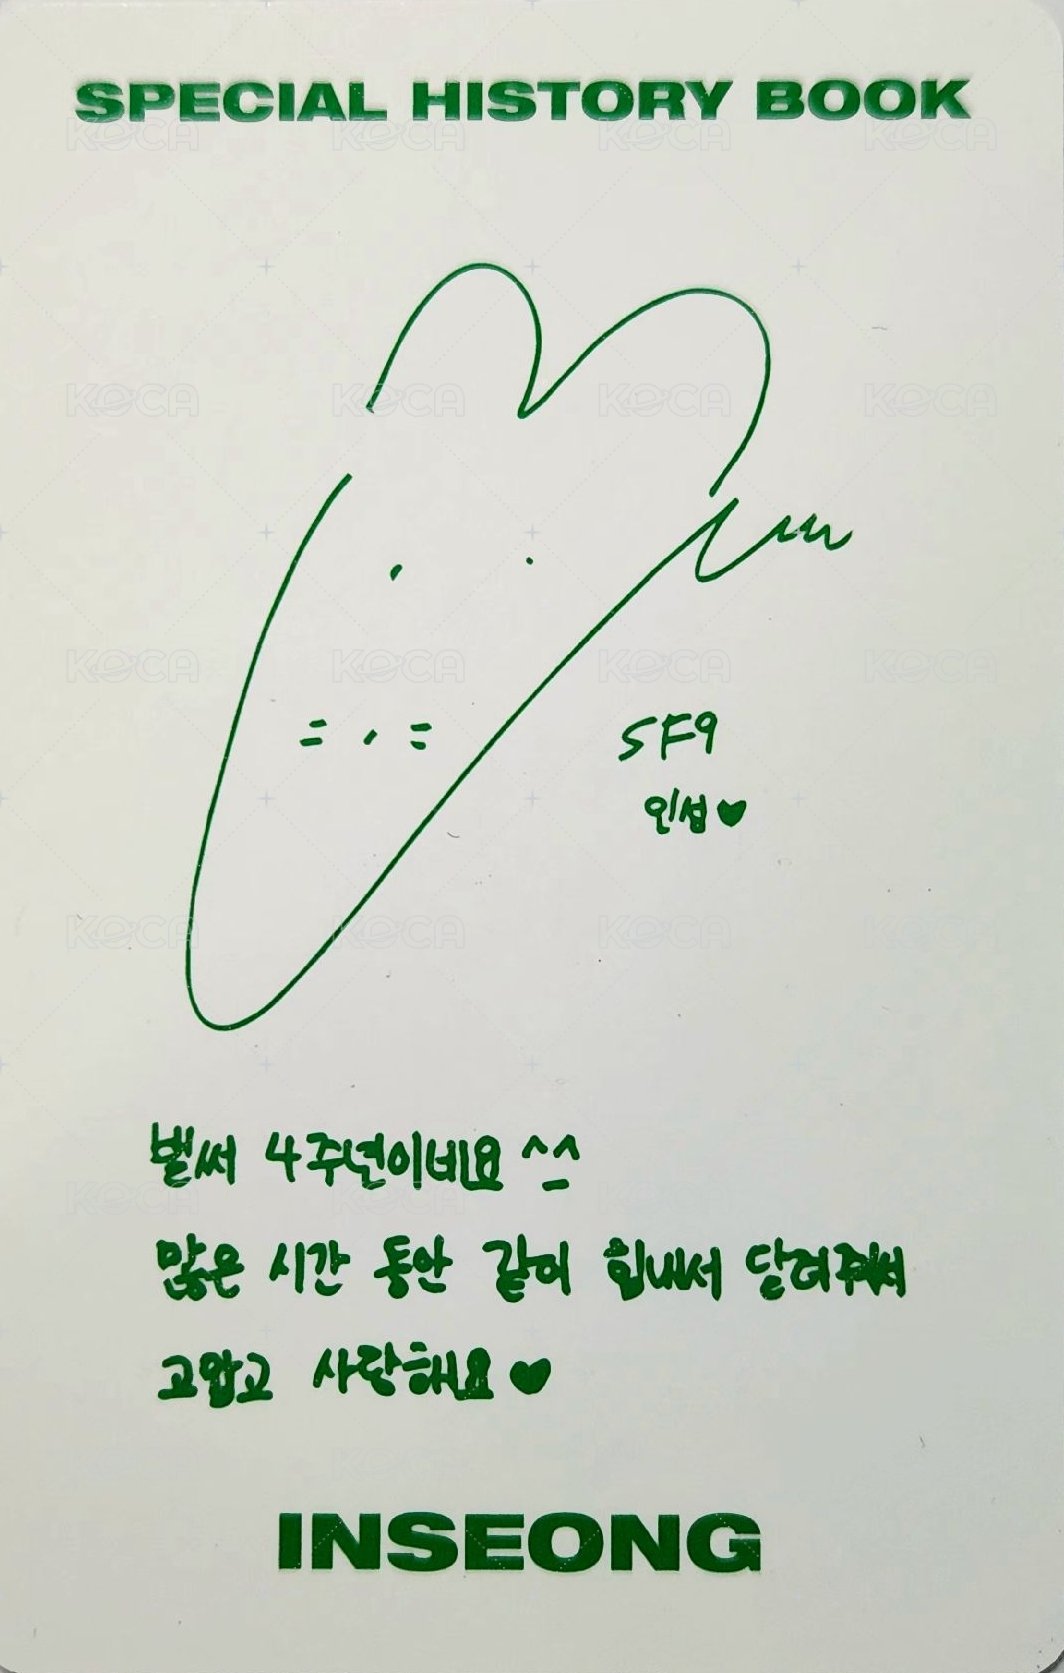 SPECIAL HISTORY BOOK
SF9
인성♥
벌써 4주년이네요 ^_^
많은 시간 동안 같이 힘내서 달려줘서
고맙고 사랑해요♥
INSEONG
KOCA